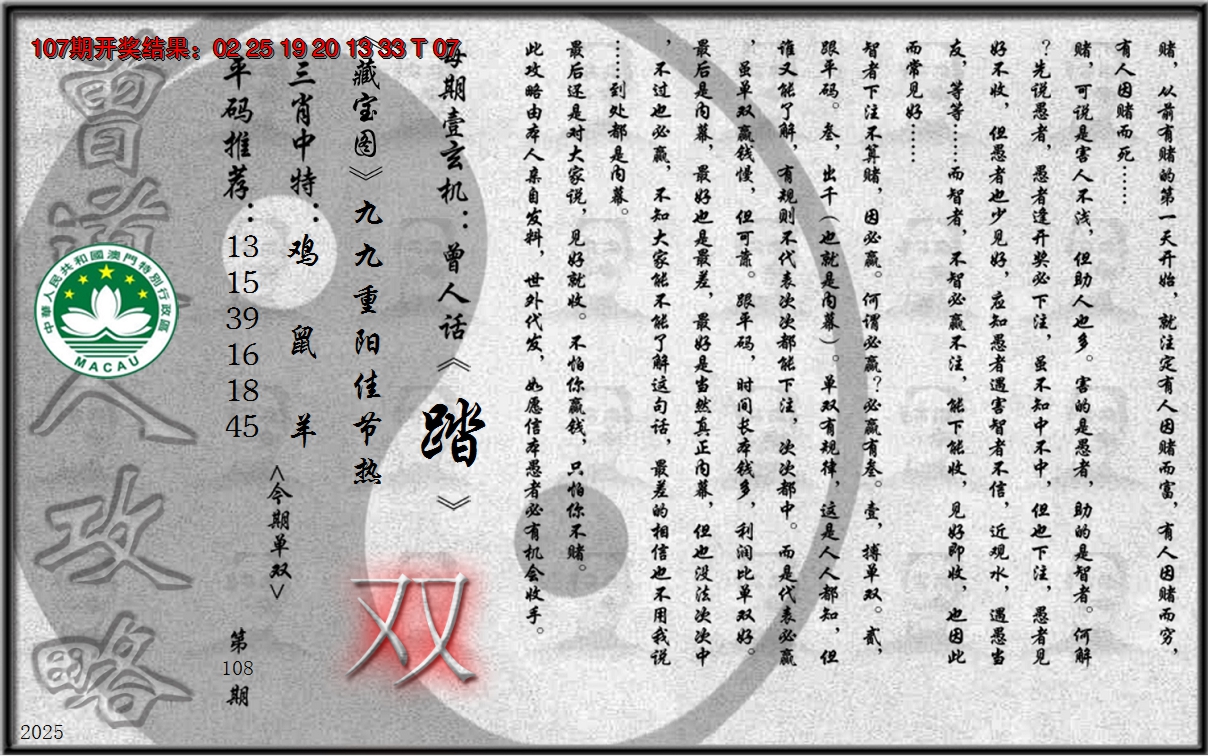 107期开奖结果：02 25 19 20 13 33 T 07
赌，从前有赌的第一天开始，就注定有人因赌而富，有人因赌而穷，
有人因赌而死……
赌，可说是害人不浅，但助人也多。害的是愚者，助的是智者。何解
？先说愚者，愚者逢开奖必下注，虽不知中不中，但也下注，愚者见
好不收，但愚者也少见好，应知愚者遇害智者不信，近观水，遇愚当
友，等等……而智者，不智必赢不注，能下能收，见好即收，也因此
而常见好……
智者下注不算赌，因必赢。何谓必赢？必赢有叁。壹，搏单双。贰，
跟平码。叁，出千（也就是内幕）。单双有规律，这是人人都知，但
谁又能了解，有规则不代表次次都能下注，次次都中。而是代表必赢
，虽单双赢钱慢，但可靠。跟平码，时间长本钱多，利润比单双好。
最后是内幕，最好也是最差，最好是当然真正内幕，但也没法次次中
，不过也必赢，不知大家能不能了解这句话，最差的相信也不用我说
……到处都是内幕。
最后还是对大家说，见好就收。不怕你赢钱，只怕你不赌。
此攻略由本人亲自发料，世外代发，如愿信本愚者必有机会收手。
每期壹玄机：曾人话《踏》
《藏宝图》九九重阳佳节热
双
三肖中特：鸡 鼠 羊
<今期单双>
平码推荐：13 15 39 16 18 45
第108期
曾道人攻略
中華人民共和國澳門特別行政區
MACAU
2025